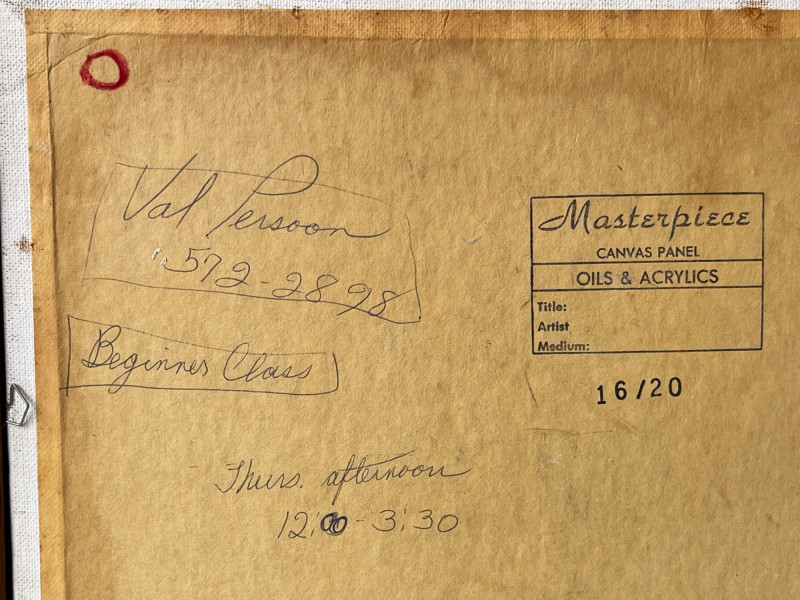 Val Persoon
572-2898
Beginner Class
Thurs. afternoon
12:00 - 3:30
Masterpiece
CANVAS PANEL
OILS & ACRYLICS
Title:
Artist
Medium:
16/20